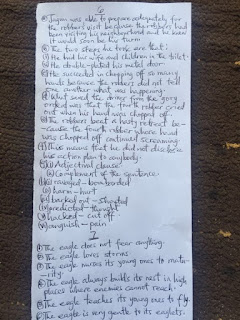 6
(a) Jagun was able to prepare adequately for
the robbers visit because the robbers had
been visiting his neighborhood and he knew
it would soon be his turn
(b) The two steps he took are that:
(i) He hid his wife and children in the toilet.
(ii) He double-plated his metal door
(c) He succeeded in chopping off so many
hands because the robbers did not tell
one another what was happening.
(d) What saved the driver from the gory
ordeal was that the fourth robber cried
out when his hand was chopped off.
(e) The robbers beat a hasty retreat be-
cause the fourth robber whose hand
was chopped off continued screaming.
(f) This means that he did not disclose
his action plan to anybody.
(g)(i) Adjectival clause
(ii) Complement of the sentence
(h)(i) ravaged - bombarded
(ii) harm - hurt
(iii) barked out - shouted
(iv) predicted - thought
(v) hacked - cut off
(vi) anguish - pain
7
(a) The eagle does not fear anything.
(b) The eagle loves storms.
(c) The eagle nurses its young ones to matu-
rity.
(d) The eagle always builds its nest in high
places where enemies cannot reach.
(e) The eagle teaches its young ones to fly.
(f) The eagle is very gentle to its eaglets.